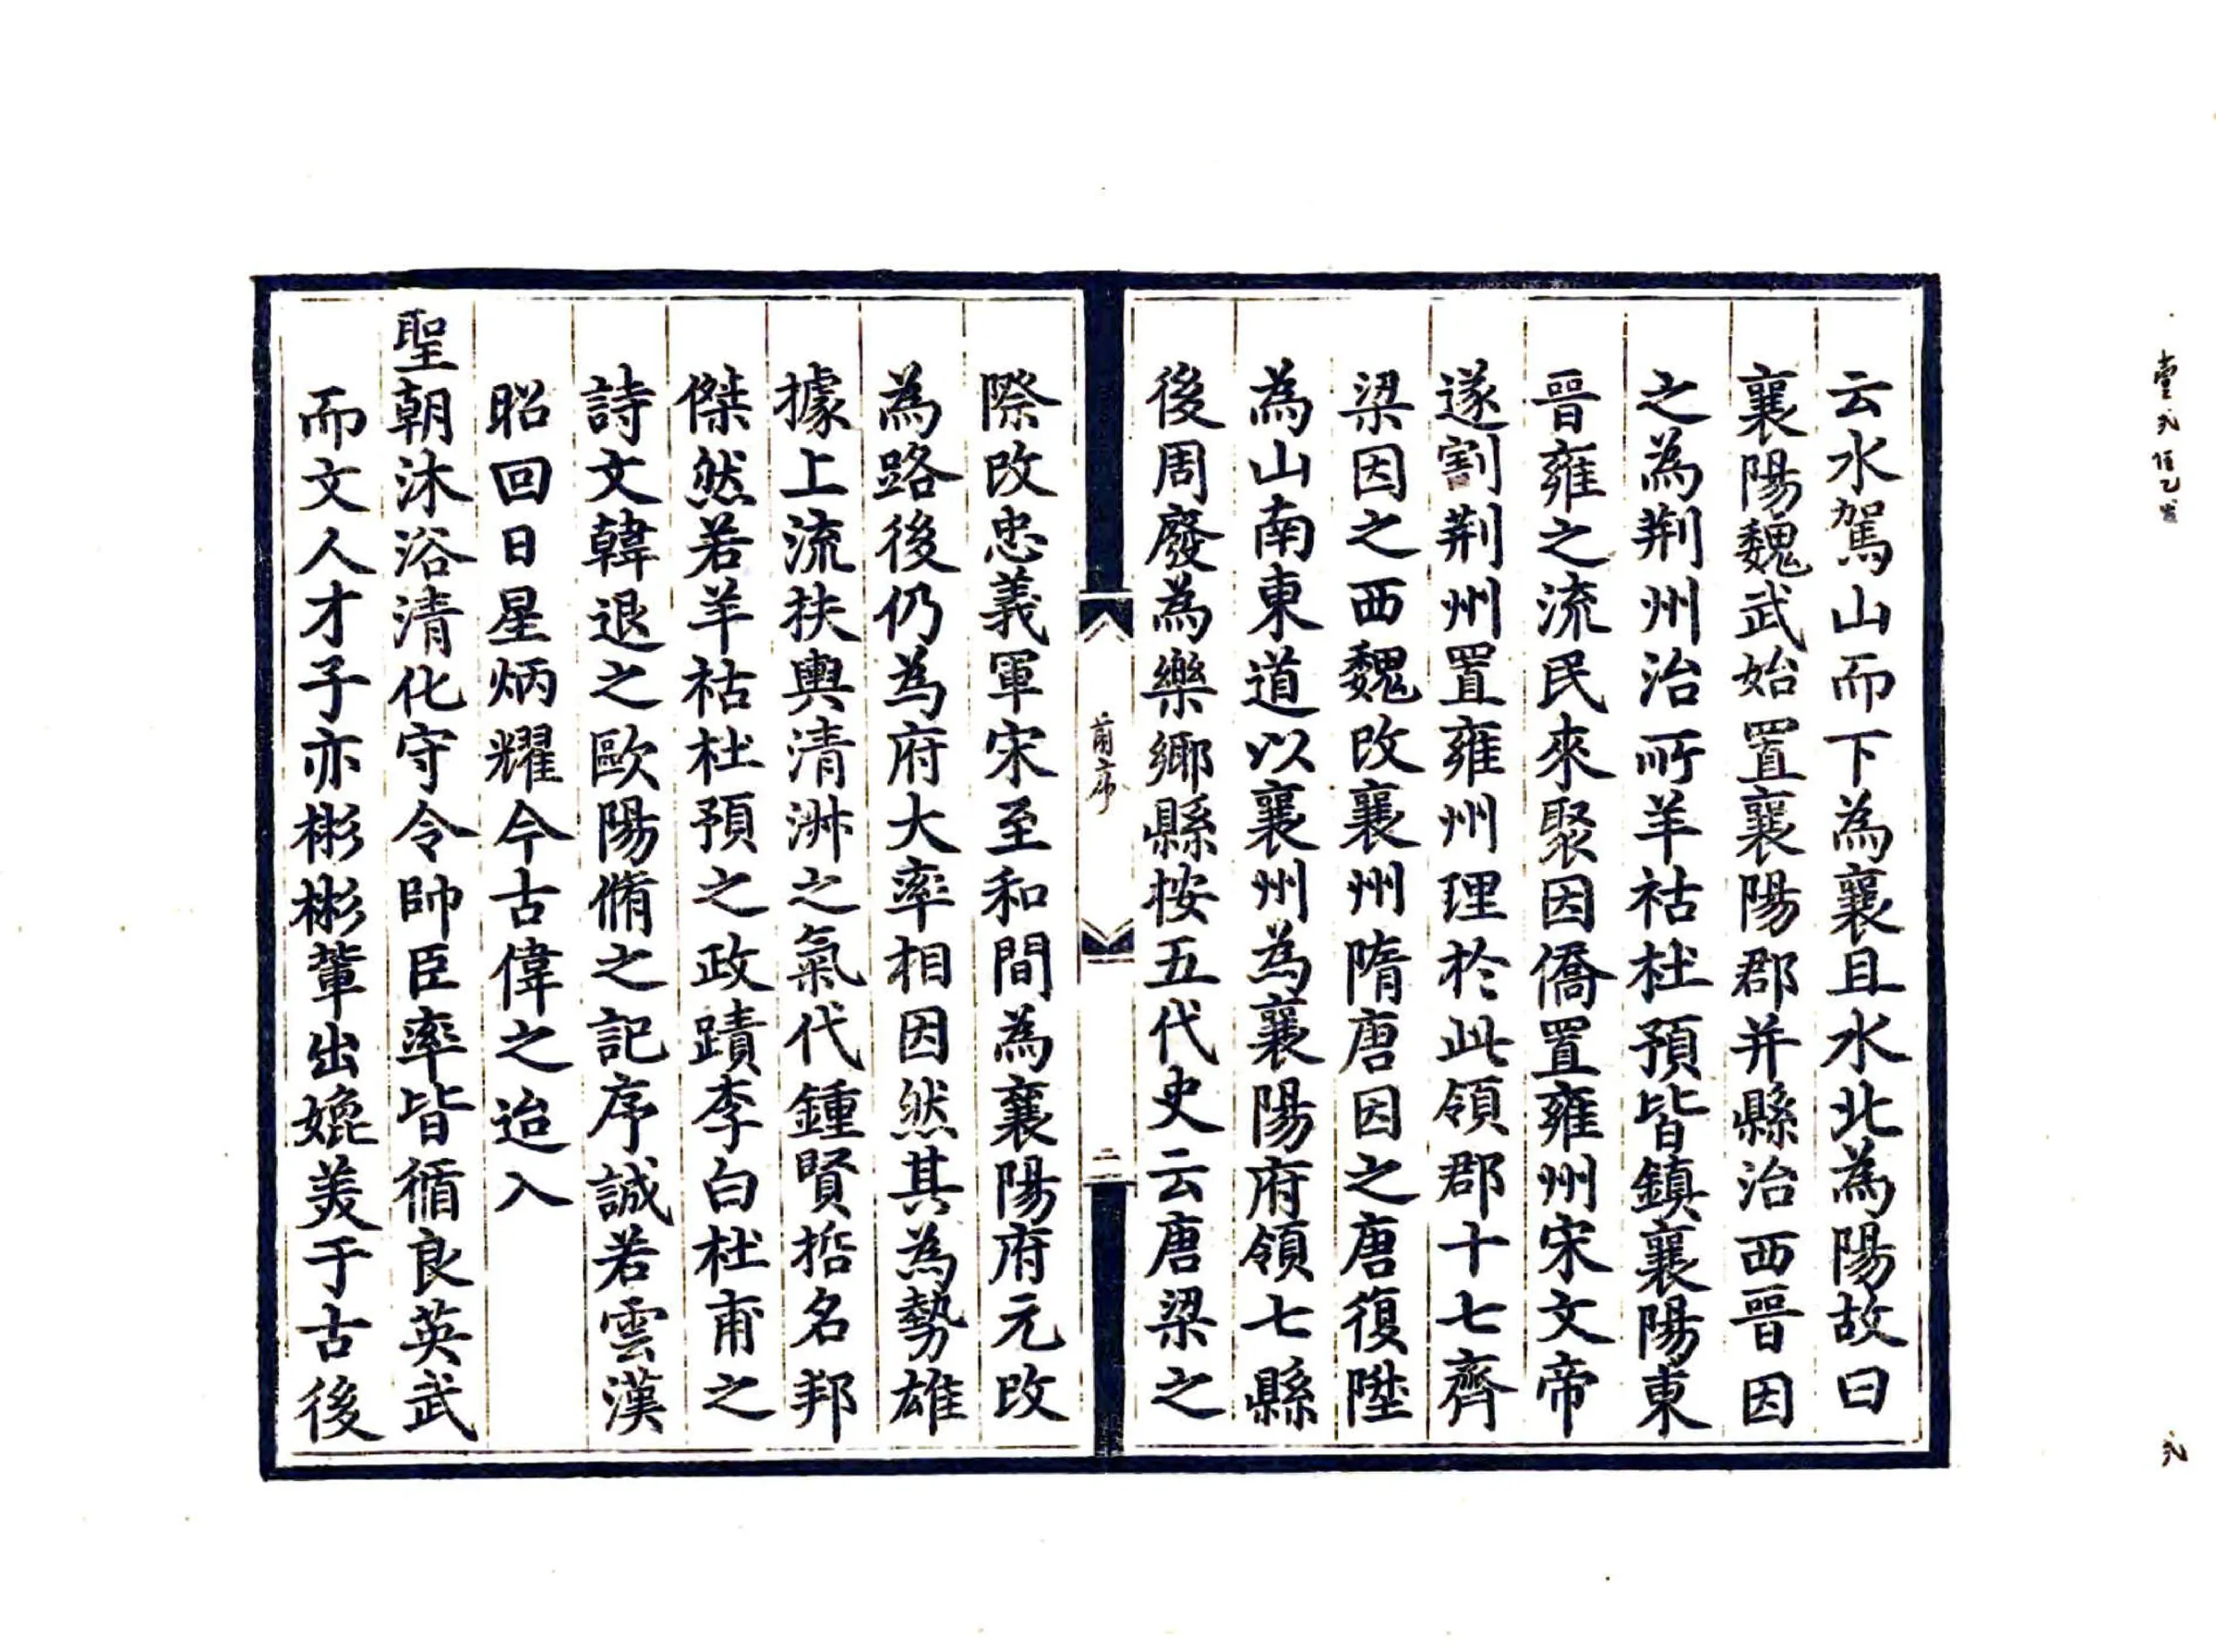 云水駕山而下為襄且水北為陽故曰
襄陽魏武始置襄陽郡并縣治西晉因
之為荆州治所羊祜杜預皆鎮襄陽東
晉雍之流民來聚因僑置雍州宋文帝
遂割荆州置雍州理於此領郡十七齊
梁因之西魏改襄州隋唐因之唐復陞
為山南東道以襄州為襄陽府領七縣
後周廢為樂鄉縣按五代史云唐梁之
前序
二
際改忠義軍宋至和間為襄陽府元改
為路後仍為府大率相因然其為勢雄
據上流扶輿清淋之氣代鍾賢哲名邦
傑然若羊祜杜預之政蹟李白杜甫之
詩文韓退之歐陽脩之記序誠若雲漢
昭回日星炳耀今古偉之迨入
聖朝沐浴清化守令帥臣率皆循良英武
而文人才子亦彬彬輩出媲美于古後